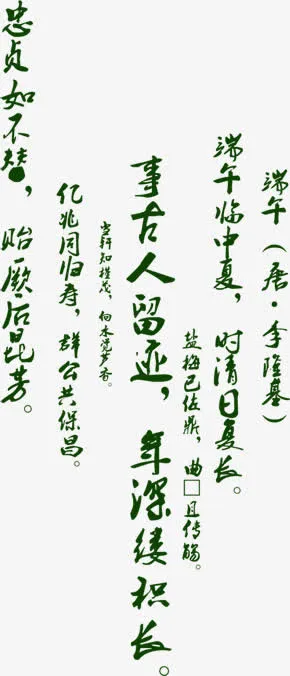 端午（唐·李隆基）
端午临中夏，时清日复长。
盐梅已佐鼎，曲□且传觞。
事古人留迹，年深缕积长。
当轩知槿茂，向水觉芦香。
亿兆同归寿，群公共保昌。
忠贞如不替，贻厥后昆芳。